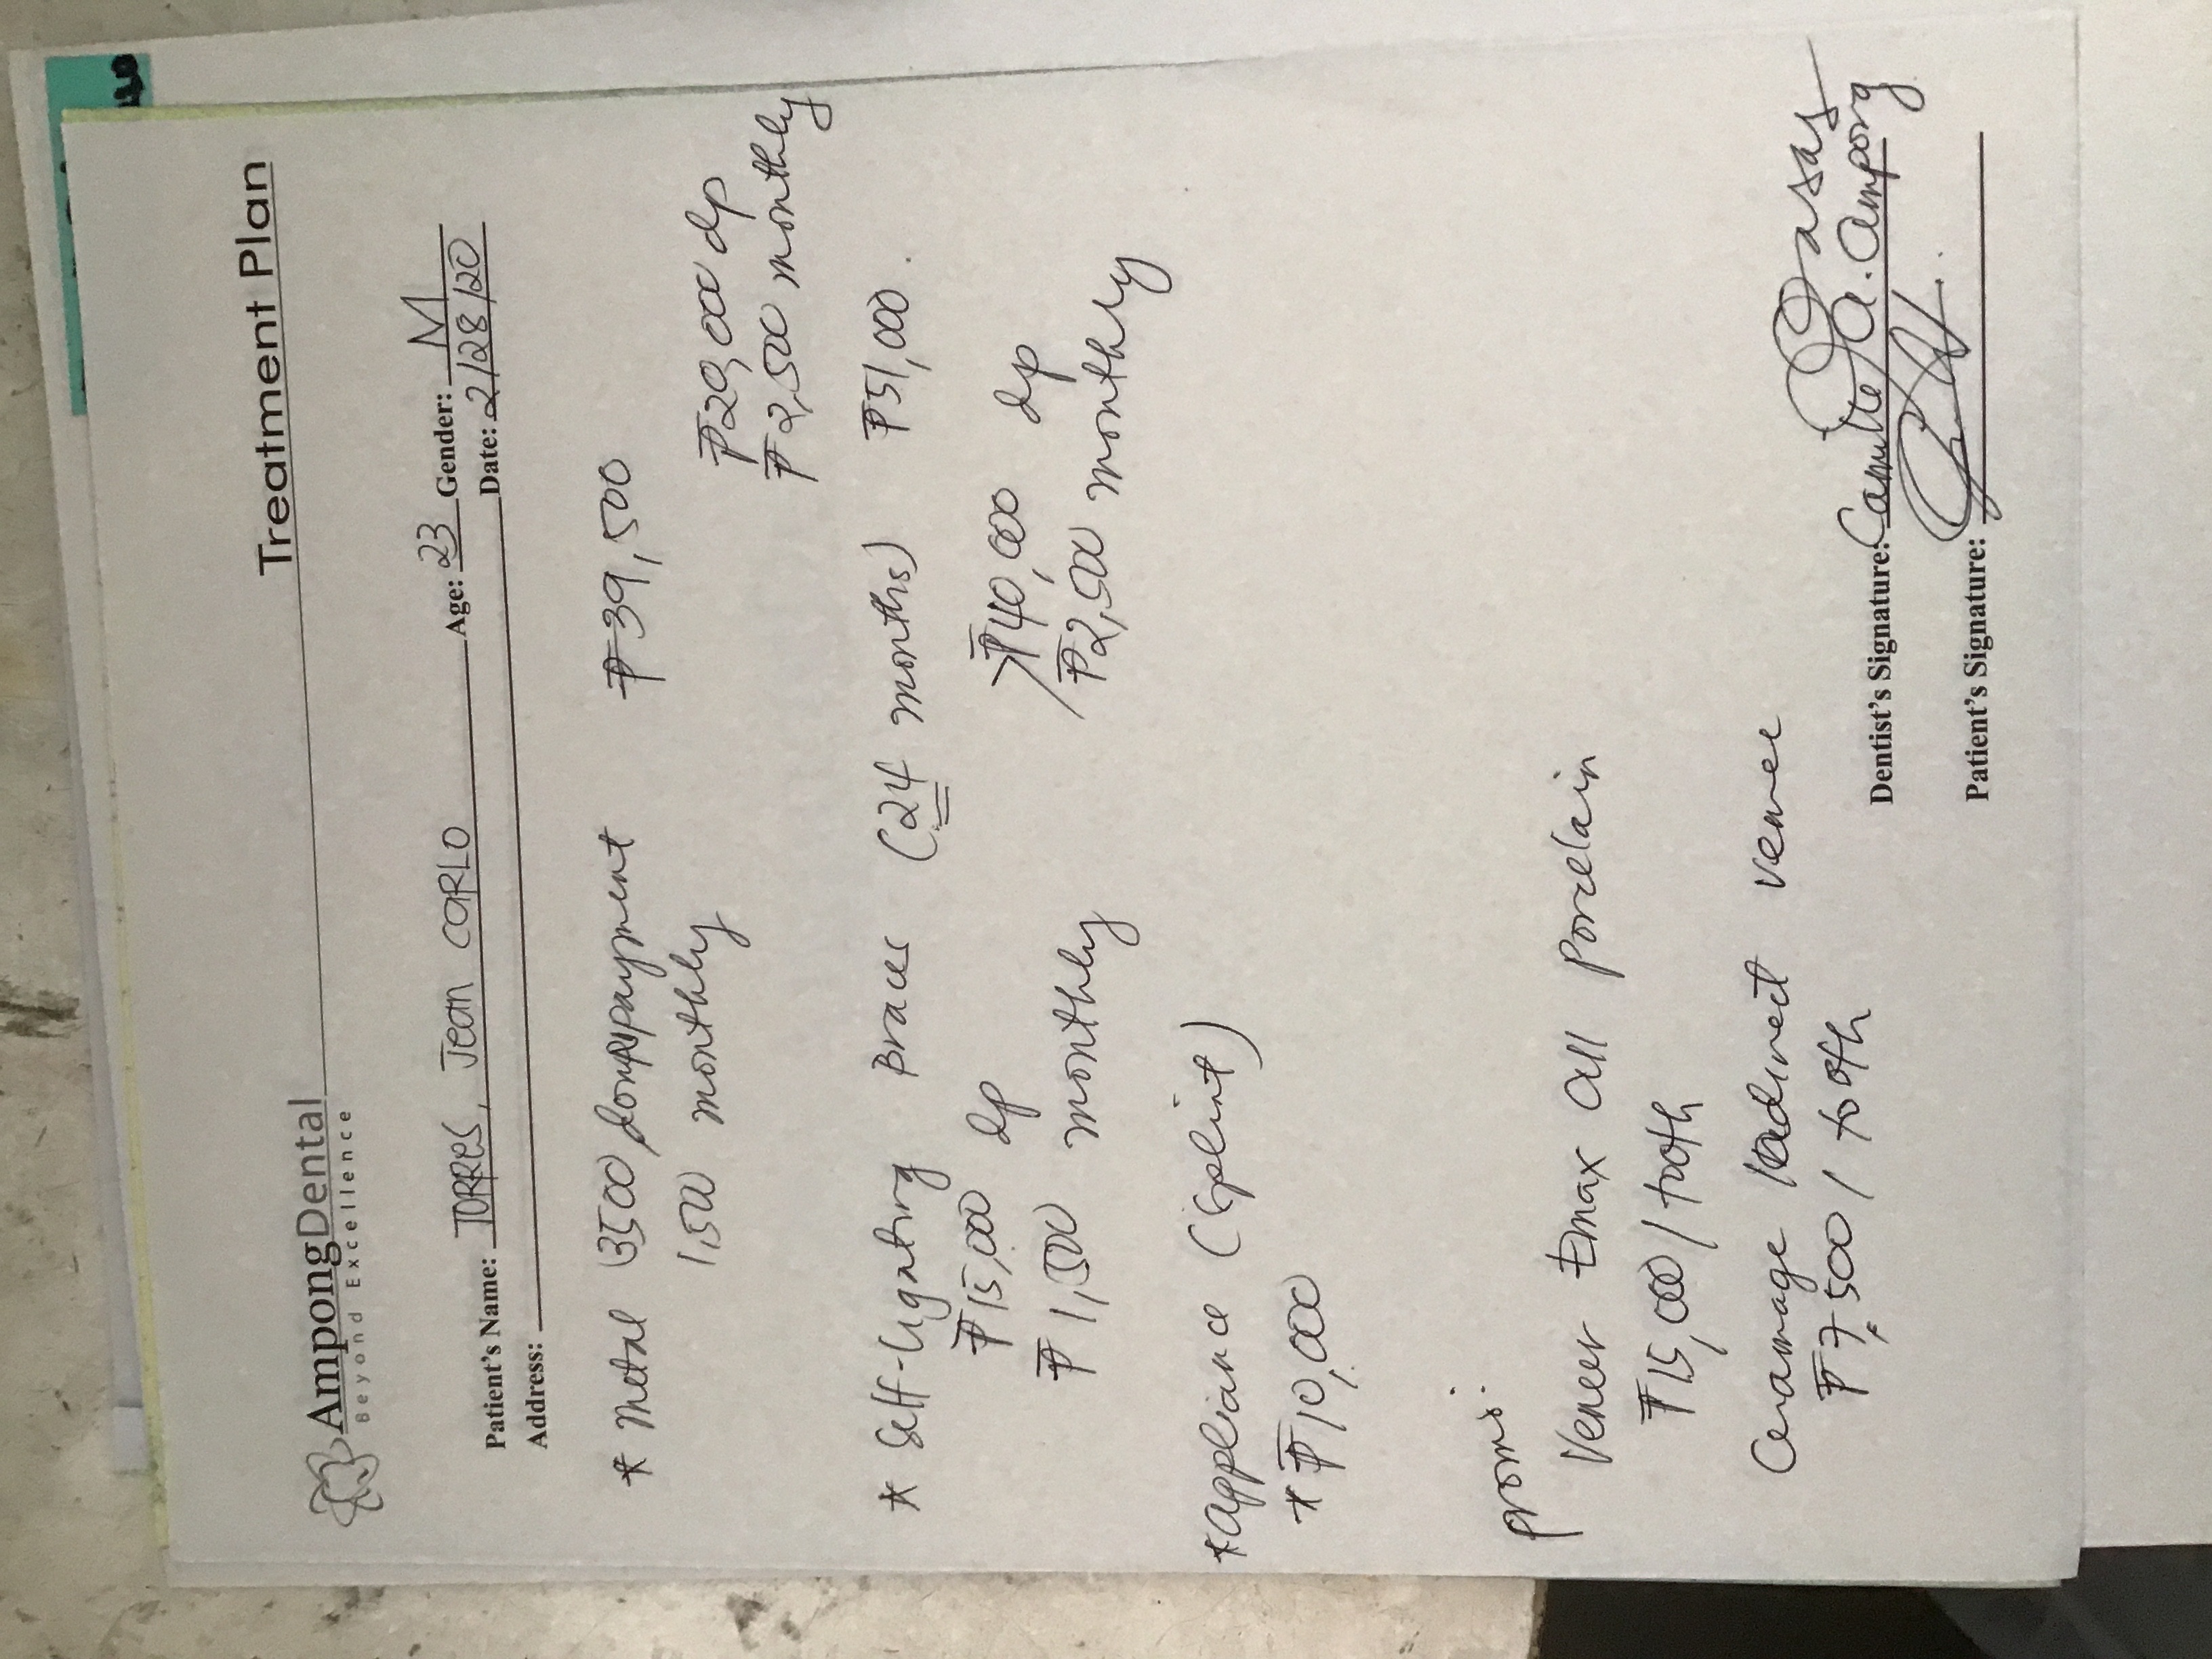 AmpongDental
Beyond Excellence
Treatment Plan
Patient's Name: TORRES, Jean CARLO Age: 23 Gender: M
Address: Date: 2/28/20
* Metal (3500 downpayment ₱39,500
1,500 monthly
₱20,000 dp
₱2,500 monthly
* Self-Ligating Braces (24 months) ₱51,000
₱15,000 dp
₱40,000 dp
₱1,500 monthly
₱2,500 monthly
* Appliance (Splint)
* ₱10,000
Veneer Emax All Porcelain
₱15,000 / tooth
Ceramage Indirect veneer
₱7,500 / tooth
Dentist's Signature: Camille A. Ampong
Patient's Signature: